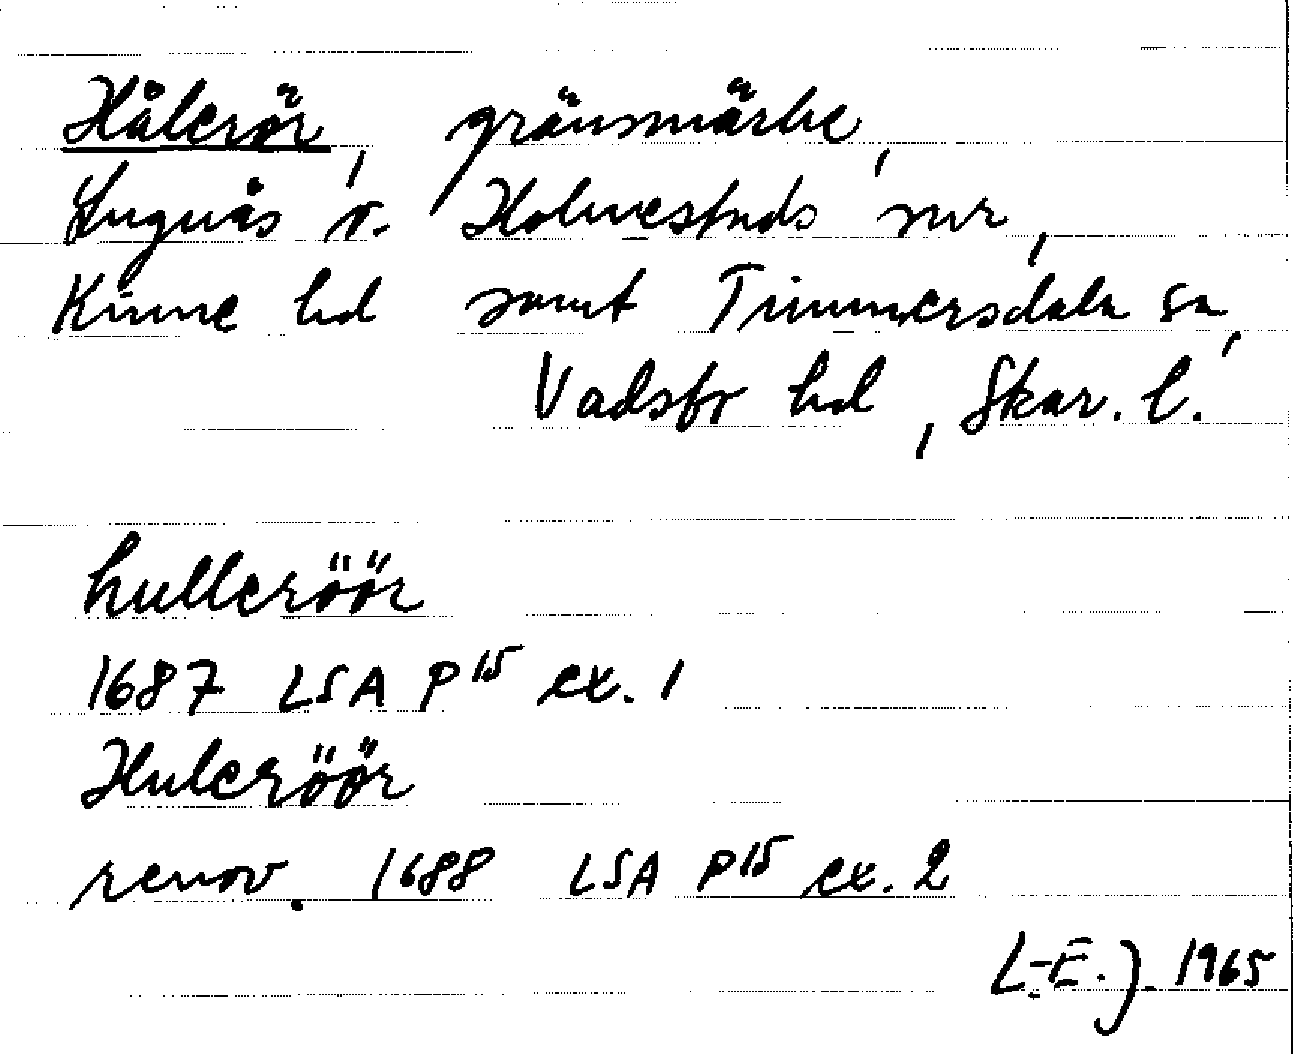 Hålerör, gränsmärke,
Lugnås o. Holmestads snr,
Kinne hd samt Timmersdala sn,
Vadsbo hd, Skar. l.
hulleröör
1687 LSA P15 ex. 1
Huleröör
renov. 1688 LSA P15 ex. 2
L-E. J. 1965